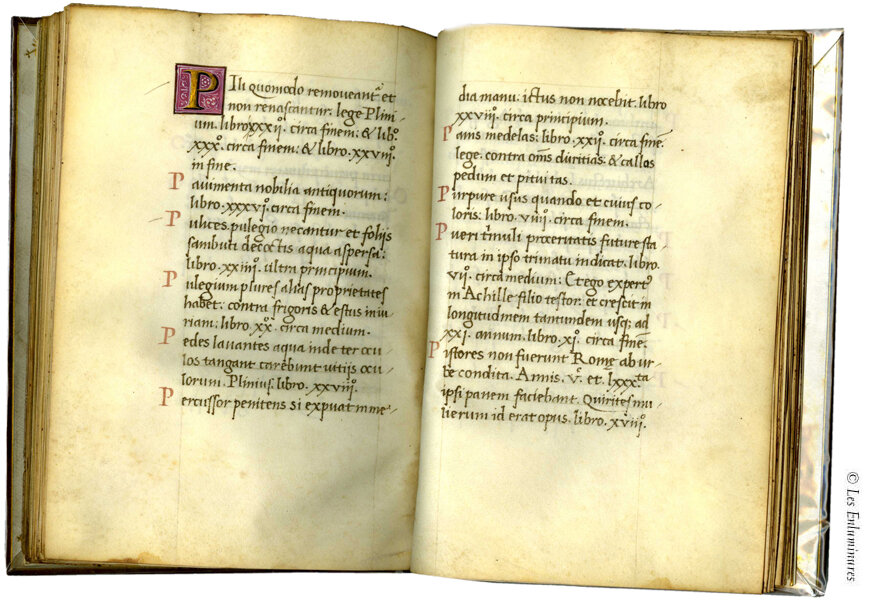 Pili quomodo removeant᷑ et
non renascantur: lege Plini-
um. libro xxxijº. circa finem: & libº
xxxº. circa finem: & libro. xxviijº.
in fine.
Pavimenta nobilia antiquorum:
libro. xxxvjº. circa finem.
Pulices pulegio necantur et foliis
sambuci decoctis aqua aspersa:
libro. xxiiijº. ultra principium.
Pulegium plures alias proprietates
habet: contra frigoris & estus iniu-
riam: libro. xxº. circa medium.
Pedes lavantes aqua inde ter ocu-
los tangant carebunt vitijs ocu-
lorum. Plinius. libro. xxviijº.
Percussor penitens si expuat in me-
dia manu: ictus non nocebit. libro
xxviijº. circa principium.
Panis medelas: libro. xxijº. circa finē.
lege. contra om̄s duritias. & callos
pedum et pituitas.
Purpure usus quando et cuius co-
loris: libro. viiijº. circa finem.
Pueri tumuli proceritatis future sta-
tura in ipso trimatu indicat. libro.
vijº. circa medium: Et ego expert⁹
in Achille filio testor: et crescit in
longitudinem tantundem usq; ad
xxj. annum. libro. xjº. circa finē.
Pistores non fuerunt Romę ab ur-
be condita. Annis. vᶜ. et. lxxxᵗᵃ
ipsi panem faciebant. Quirites mu-
lierum id erat opus. libro. xviijº.
© Les Enluminures